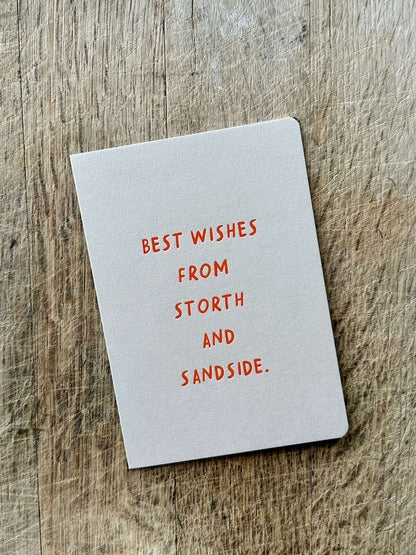 BEST WISHES
FROM
STORTH
AND
SANDSIDE.